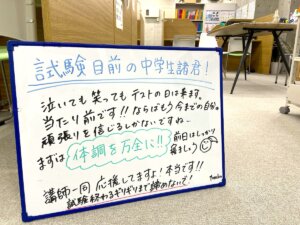 試験目前の中学生諸君!
泣いても笑ってもテストの日は来ます。
当たり前です!!ならばもう今までの自分の
頑張りを信じるしかないですね。
まずは 体調を万全に!! 前日はしっかり
寝ましょう
講師一同 応援してますよ!本当です!!
試験終わるギリギリまで諦めないで!